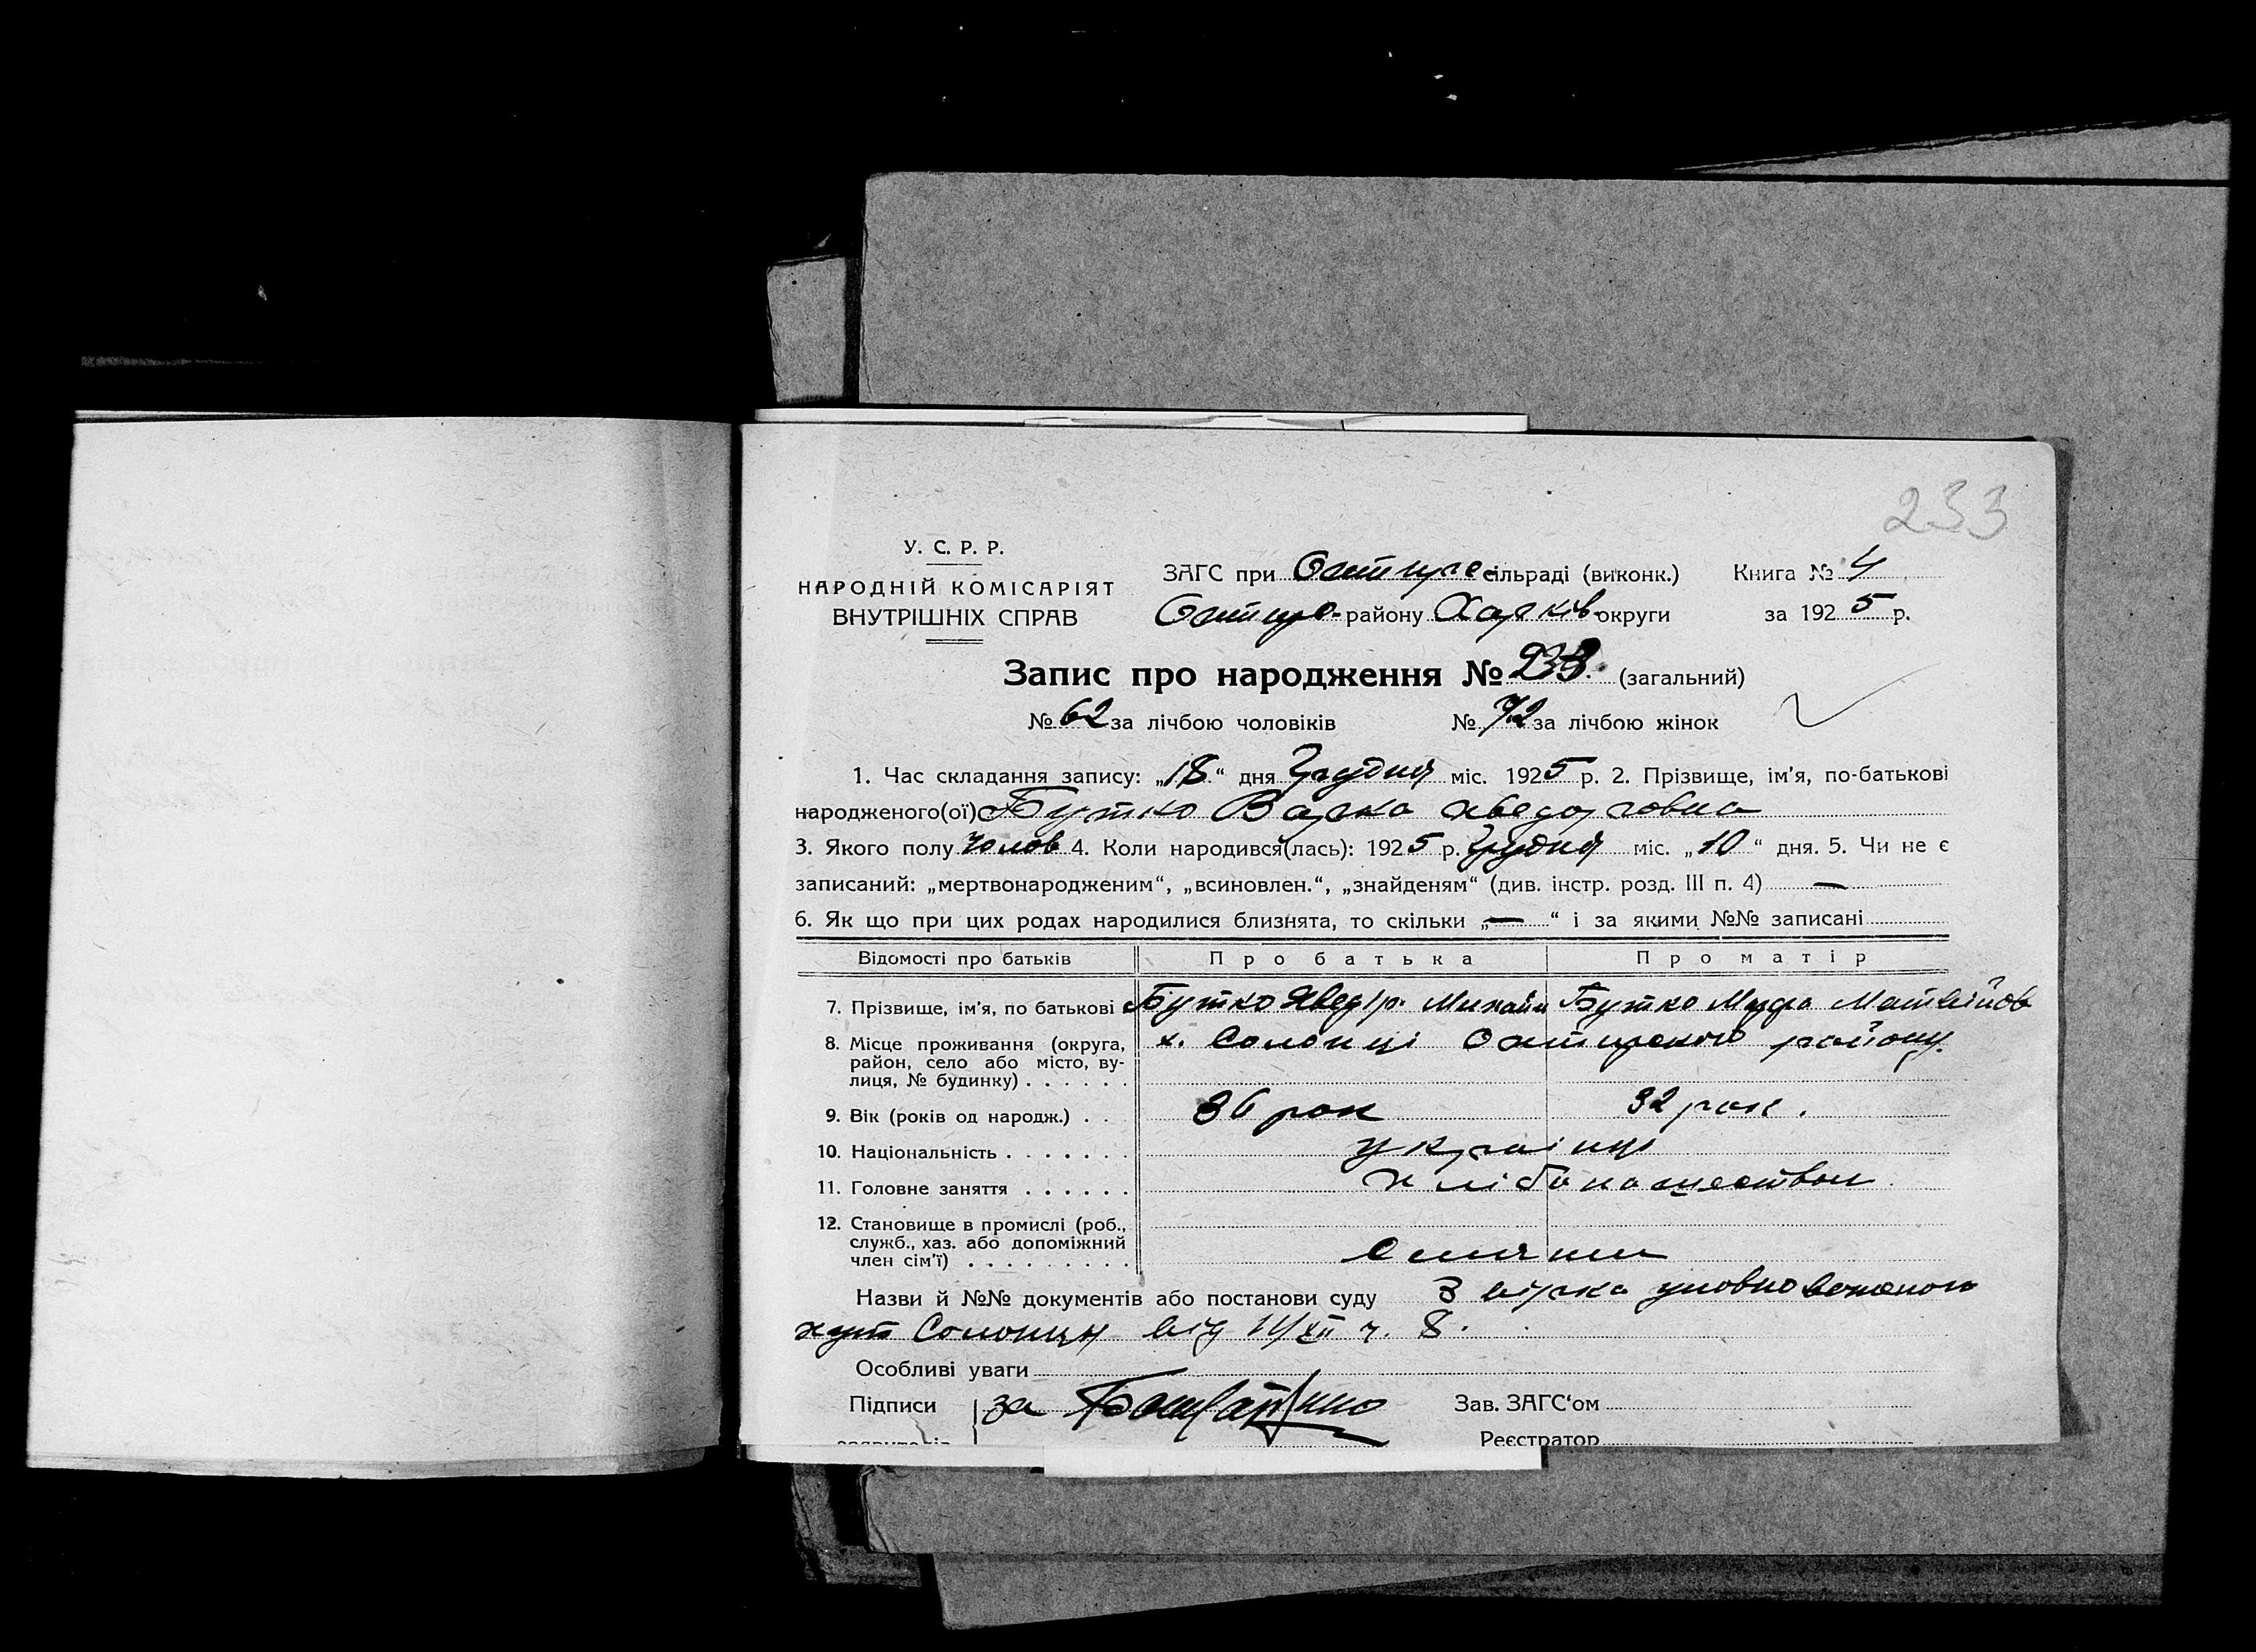 233
У. С. Р. Р.
НАРОДНІЙ КОМІСАРІЯТ
ВНУТРІШНІХ СПРАВ
ЗАГС при сільраді (виконк.) Книга № 4
району Харків округи за 1925 р.
Запис про народження № 233. (загальний)
№ 62 за лічбою чоловіків № 72 за лічбою жінок
1. Час складання запису: „18“ дня Грудня міс. 1925 р. 2. Прізвище, ім'я, по-батькові
народженого(ої) Бутко Варка хведоровна
3. Якого полу чолов 4. Коли народився(лась): 1925 р. Грудня міс. „10“ дня. 5. Чи не є
записаний: „мертвонародженим“, „всиновлен.“, „знайденям“ (див. інстр. розд. III п. 4) —
6. Як що при цих родах народилися близнята, то скільки „—“ і за якими №№ записані
Відомості про батьків Про батька Про матір
7. Прізвище, ім'я, по батькові Бутко Хведір Михайл Бутко Матвійов
8. Місце проживання (округа, х. Солонці району.
район, село або місто, ву-
лиця, № будинку)
9. Вік (років од народж.) 36 рок 32 рок.
10. Національність українці
11. Головне заняття
12. Становище в промислі (роб.,
служб., хаз. або допоміжний
член сім'ї)
Назви й №№ документів або постанови суду З уповноваженого
хут Солонцы від XII ч. 8.
Особливі уваги
Підписи за Зав. ЗАГС‘ом
Реєстратор